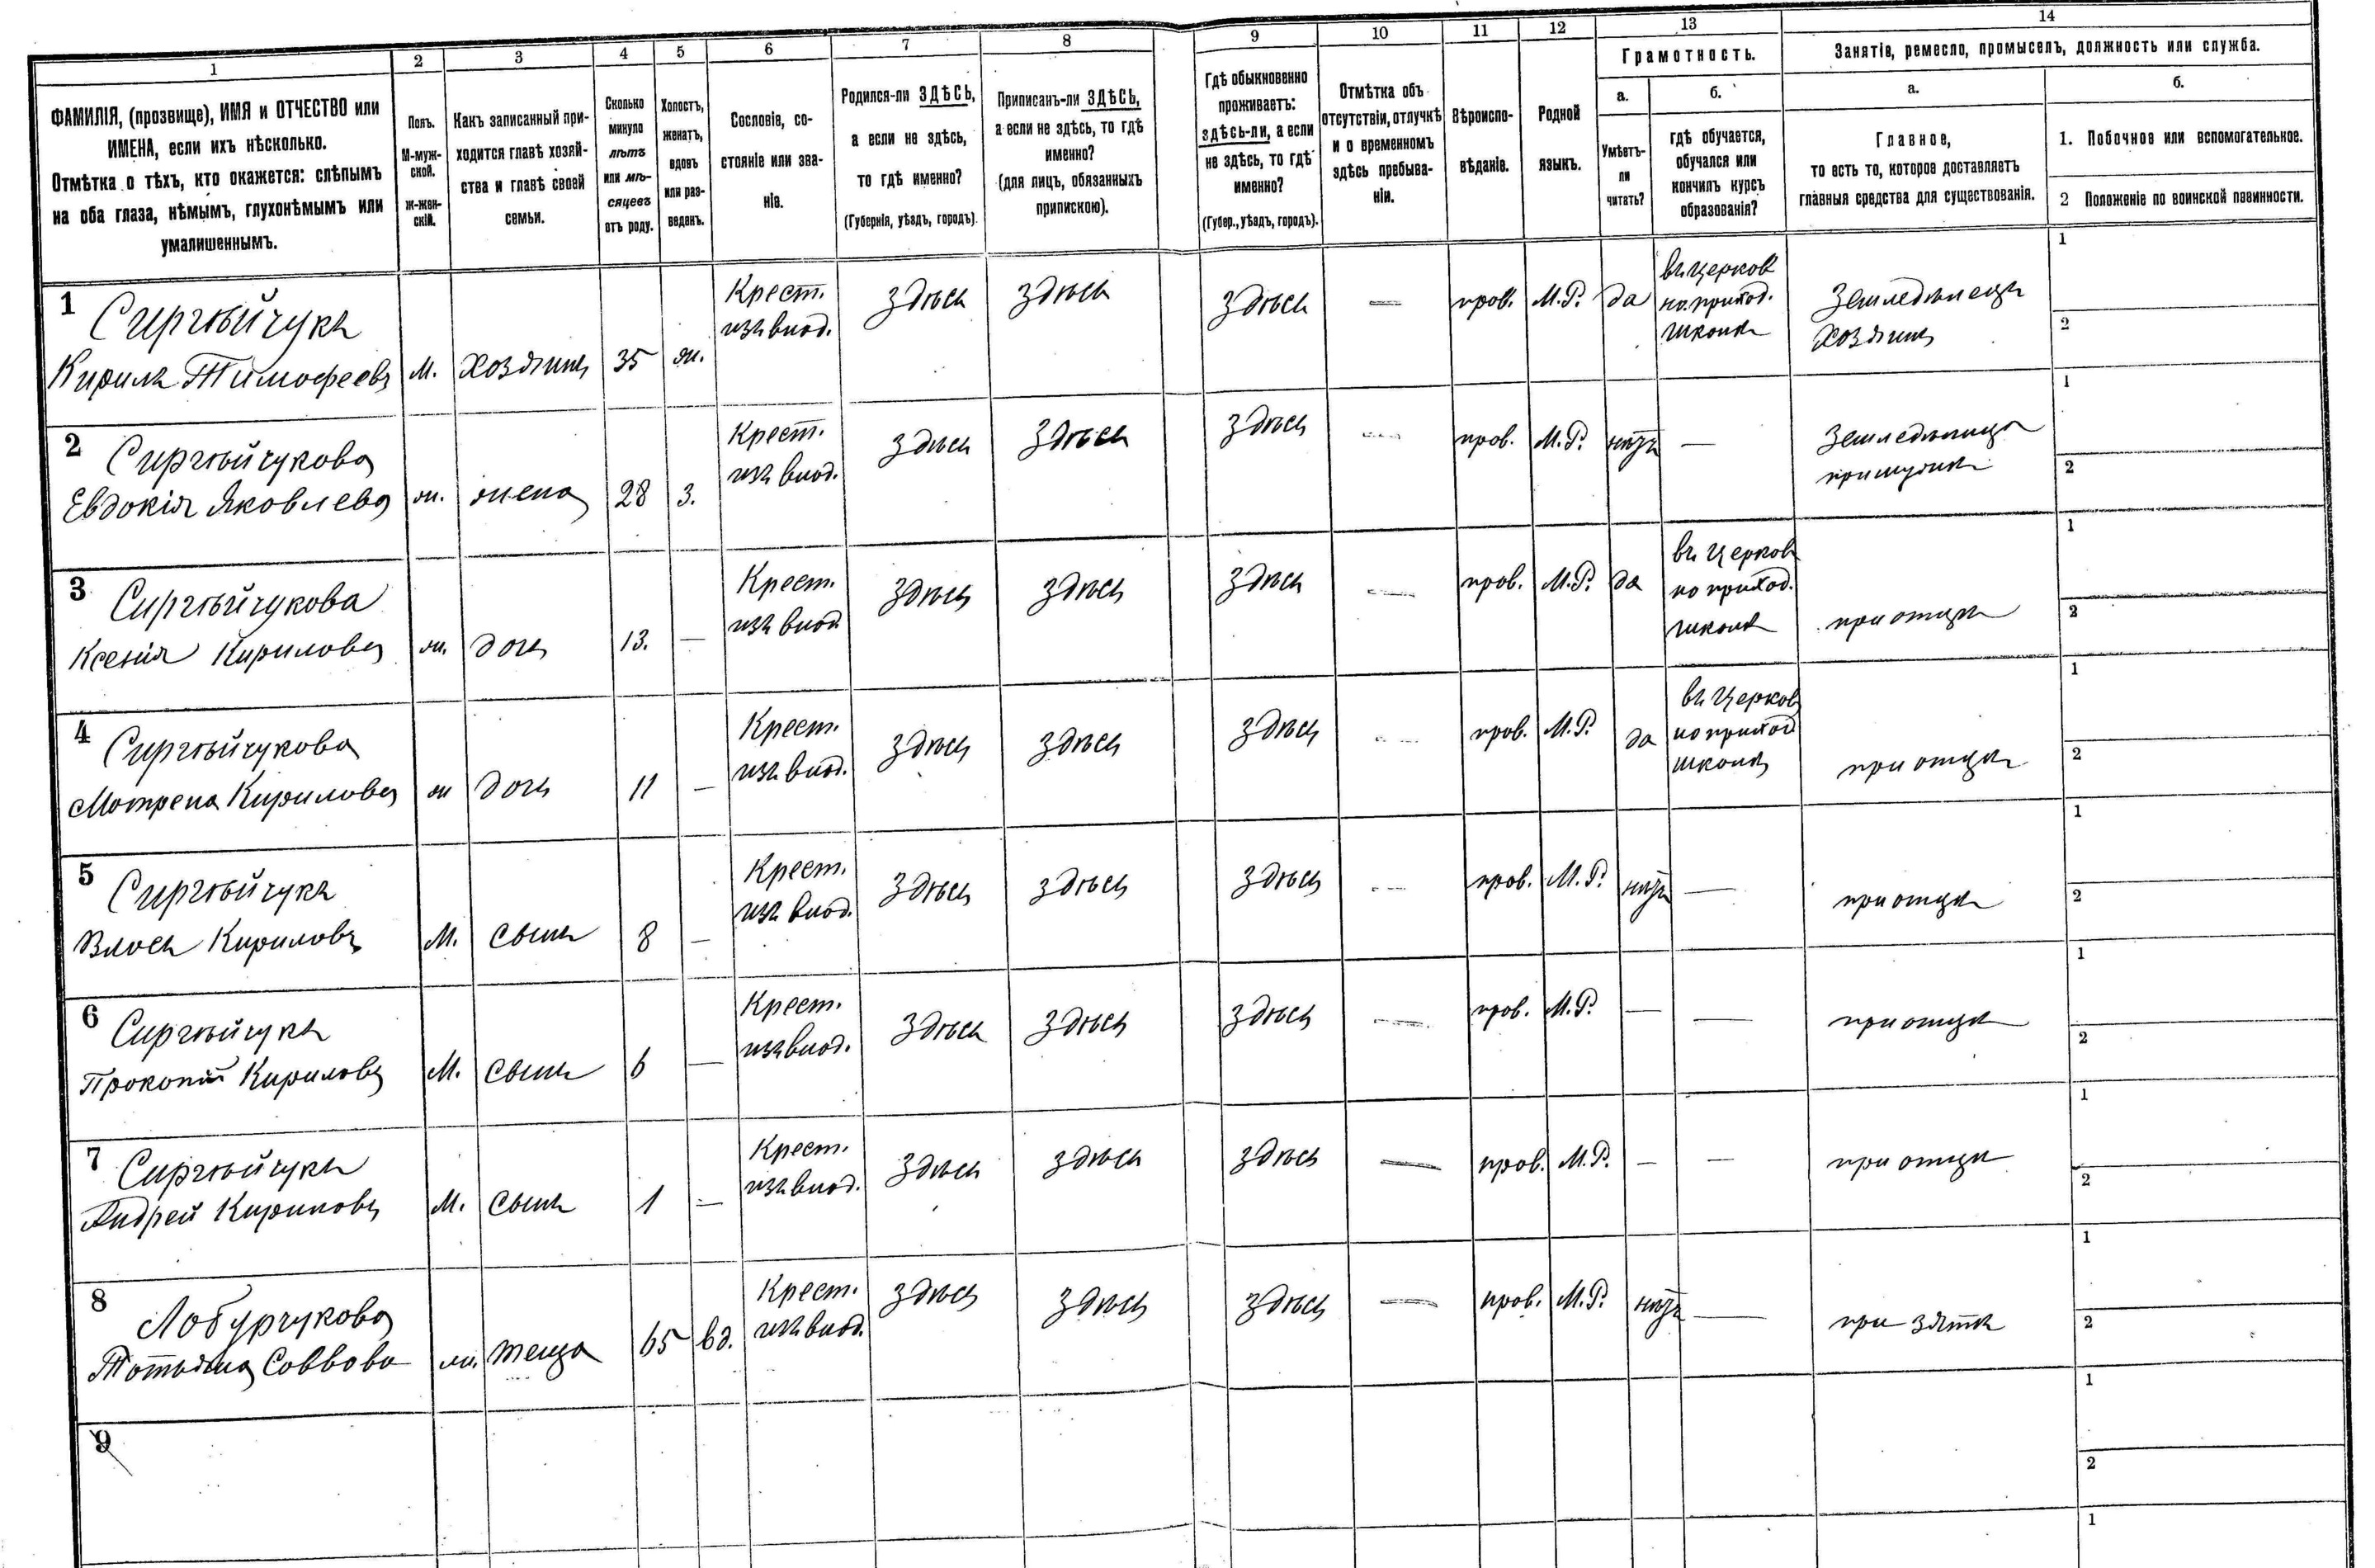 1 2 3 4 5 6 7 8 9 10 11 12 13 14
ФАМИЛІЯ, (прозвище), ИМЯ и ОТЧЕСТВО или
ИМЕНА, если ихъ нѣсколько.
Отмѣтка о тѣхъ, кто окажется: слѣпымъ
на оба глаза, нѣмымъ, глухонѣмымъ или
умалишеннымъ.
Полъ.
М-муж-
ской.
ж-жен-
скій.
Какъ записанный при-
ходится главѣ хозяй-
ства и главѣ своей
семьи.
Сколько
минуло
лѣтъ
или мѣ-
сяцевъ
отъ роду.
Холостъ,
женатъ,
вдовъ
или раз-
веденъ.
Сословіе, со-
стояніе или зва-
ніе.
Родился-ли ЗДѢСЬ,
а если не здѣсь,
то гдѣ именно?
(Губернія, уѣздъ, городъ).
Приписанъ-ли ЗДѢСЬ,
а если не здѣсь, то гдѣ
именно?
(для лицъ, обязанныхъ
припискою).
Гдѣ обыкновенно
проживаетъ:
здѣсь-ли, а если
не здѣсь, то гдѣ
именно?
(Губер., уѣздъ, городъ).
Отмѣтка объ
отсутствіи, отлучкѣ
и о временномъ
здѣсь пребыва-
ніи.
Вѣроиспо-
вѣданіе.
Родной
языкъ.
Грамотность.
а.
Умѣетъ-
ли
читать?
б.
гдѣ обучается,
обучался или
кончилъ курсъ
образованія?
Занятіе, ремесло, промыселъ, должность или служба.
а.
Главное,
то есть то, которое доставляетъ
главныя средства для существованія.
б.
1. Побочное или вспомогательное.
2 Положеніе по воинской повинности.
1 Сиргѣйчукъ
Кирилъ Тимофеевъ
м. хозяинъ 35 ж.
Крест.
изъ влад.
здѣсь здѣсь здѣсь — прав. М.Р. да
въ церков
но.приход.
школѣ
Земледѣлецъ
хозяинъ
1
2
2 Сиргѣйчукова
Евдокія Яковлева
ж. жена 28 з.
Крест.
изъ влад.
здѣсь здѣсь здѣсь — прав. М.Р. нѣтъ —
Земледѣлица
при мужѣ
1
2
3 Сиргѣйчукова
Ксенія Кирилова
ж. дочь 13. —
Крест.
изъ влад
здѣсь здѣсь здѣсь — прав. М.Р. да
въ церков
но приход.
школѣ
при отцѣ
1
2
4 Сиргѣйчукова
Мотрена Кирилова
ж дочь 11 —
Крест.
изъ влад.
здѣсь здѣсь здѣсь — прав. М.Р. да
въ церков
но приход
школѣ
при отцѣ
1
2
5 Сиргѣйчукъ
Власъ Кириловъ
М. сынъ 8 —
Крест.
изъ влад.
здѣсь здѣсь здѣсь — прав. М.Р. нѣтъ —
при отцѣ
1
2
6 Сиргѣйчукъ
Прокопій Кириловъ
М. сынъ 6 —
Крест.
изъ влад.
здѣсь здѣсь здѣсь — прав. М.Р. — —
при отцѣ
1
2
7 Сиргѣйчукъ
Андрей Кириловъ
М. сынъ 1 —
Крест.
изъ влад.
здѣсь здѣсь здѣсь — прав. М.Р. — —
при отцѣ
1
2
8 Лобурчукова
Татьяна Саввова
ж. теща 65 вд.
Крест.
изъ влад.
здѣсь здѣсь здѣсь — прав. М.Р. нѣтъ —
при зятѣ
1
2
9
1
2
1